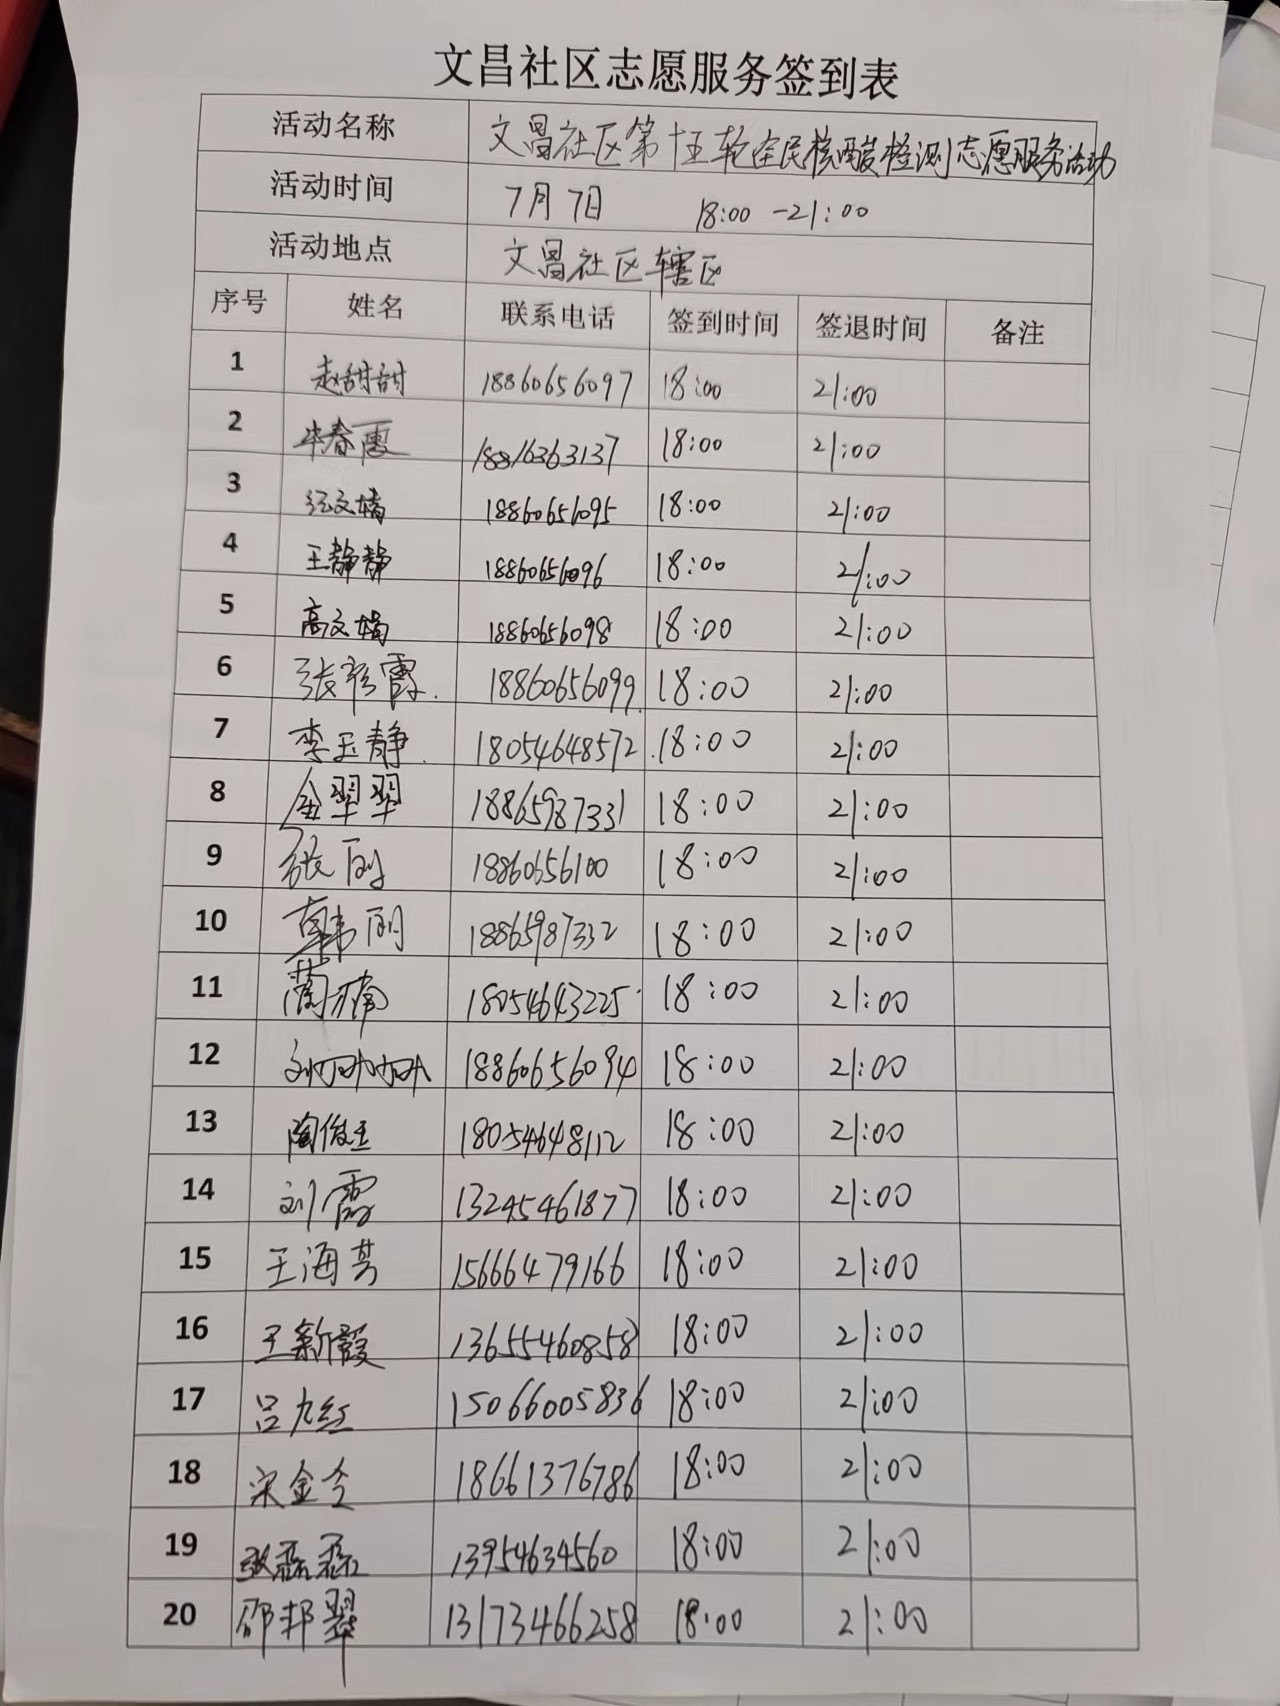 文昌社区志愿服务签到表
活动名称 文昌社区第十五轮全民核酸检测志愿服务活动
活动时间 7月7日 18:00-21:00
活动地点 文昌社区辖区
序号 姓名 联系电话 签到时间 签退时间 备注
1 赵甜甜 18860656097 18:00 21:00
2 牟春霞 18816363137 18:00 21:00
3 18860656095 18:00 21:00
4 王静静 18860656096 18:00 21:00
5 高文娟 18860656098 18:00 21:00
6 张彩霞 18860656099 18:00 21:00
7 李玉静 18054648572 18:00 21:00
8 金翠翠 18865987331 18:00 21:00
9 张丽 18860656100 18:00 21:00
10 韩丽 18865987332 18:00 21:00
11 18054643225 18:00 21:00
12 18860656094 18:00 21:00
13 陶俊玉 18054648112 18:00 21:00
14 刘霞 13245461877 18:00 21:00
15 王海芳 15666479166 18:00 21:00
16 王新霞 13655460858 18:00 21:00
17 吕九红 15066005836 18:00 21:00
18 宋金令 18661376786 18:00 21:00
19 张磊磊 13954634560 18:00 21:00
20 邵邦翠 13173466258 18:00 21:00